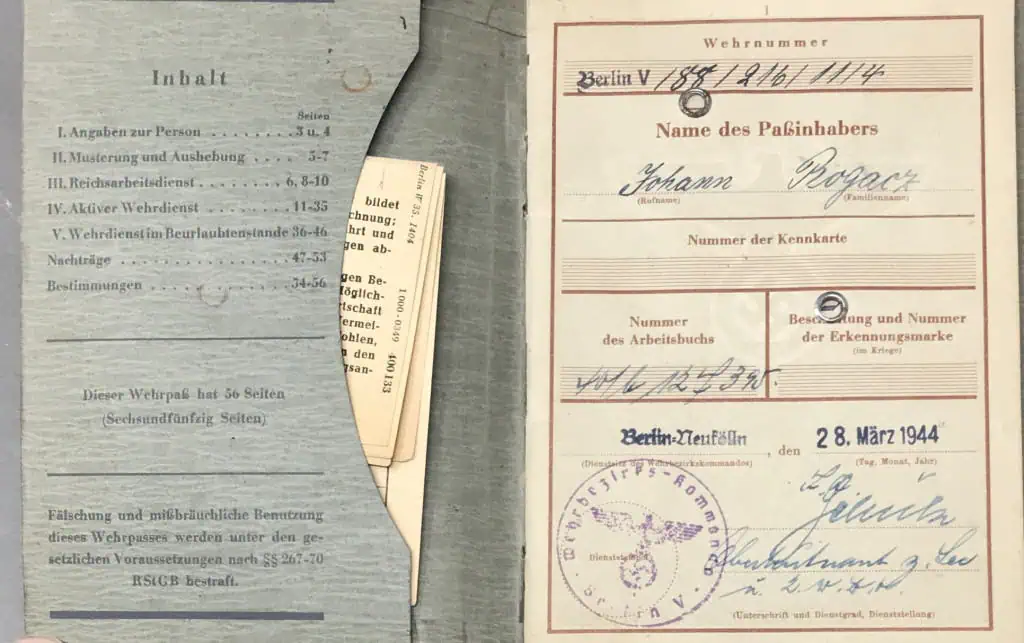 Inhalt
Seiten
I. Angaben zur Person . . . . . . . . 3 u. 4
II. Musterung und Aushebung . . . . 5-7
III. Reichsarbeitsdienst . . . . . . . . 6, 8-10
IV. Aktiver Wehrdienst . . . . . . . . 11-35
V. Wehrdienst im Beurlaubtenstande 36-46
Nachträge . . . . . . . . . . . . . . . 47-53
Bestimmungen . . . . . . . . . . . . 54-56
Dieser Wehrpaß hat 56 Seiten
(Sechsundfünfzig Seiten)
Fälschung und mißbräuchliche Benutzung
dieses Wehrpasses werden unter den ge-
setzlichen Voraussetzungen nach §§ 267-70
RStGB bestraft.
bildet
chnung;
hrt und
gen ab-
gen Be-
föglich-
rtschaft
ermei-
ohlen,
den
gsan-
Berlin W 35. 1404
1 000 - 0349 400 133
Wehrnummer
Berlin V /88/216/11/4
Name des Paßinhabers
Johann Bogacz
(Rufname) (Familienname)
Nummer der Kennkarte
Nummer
des Arbeitsbuchs
und Nummer
der Erkennungsmarke
(im Kriege)
Berlin-Neukölln, den 28. März 1944
(Dienstsitz des Wehrbezirkskommandos) (Tag, Monat, Jahr)
Wehrbezirks-Kommando
Berlin V.
Oberleutnant z. See
(Unterschrift und Dienstgrad, Dienststellung)